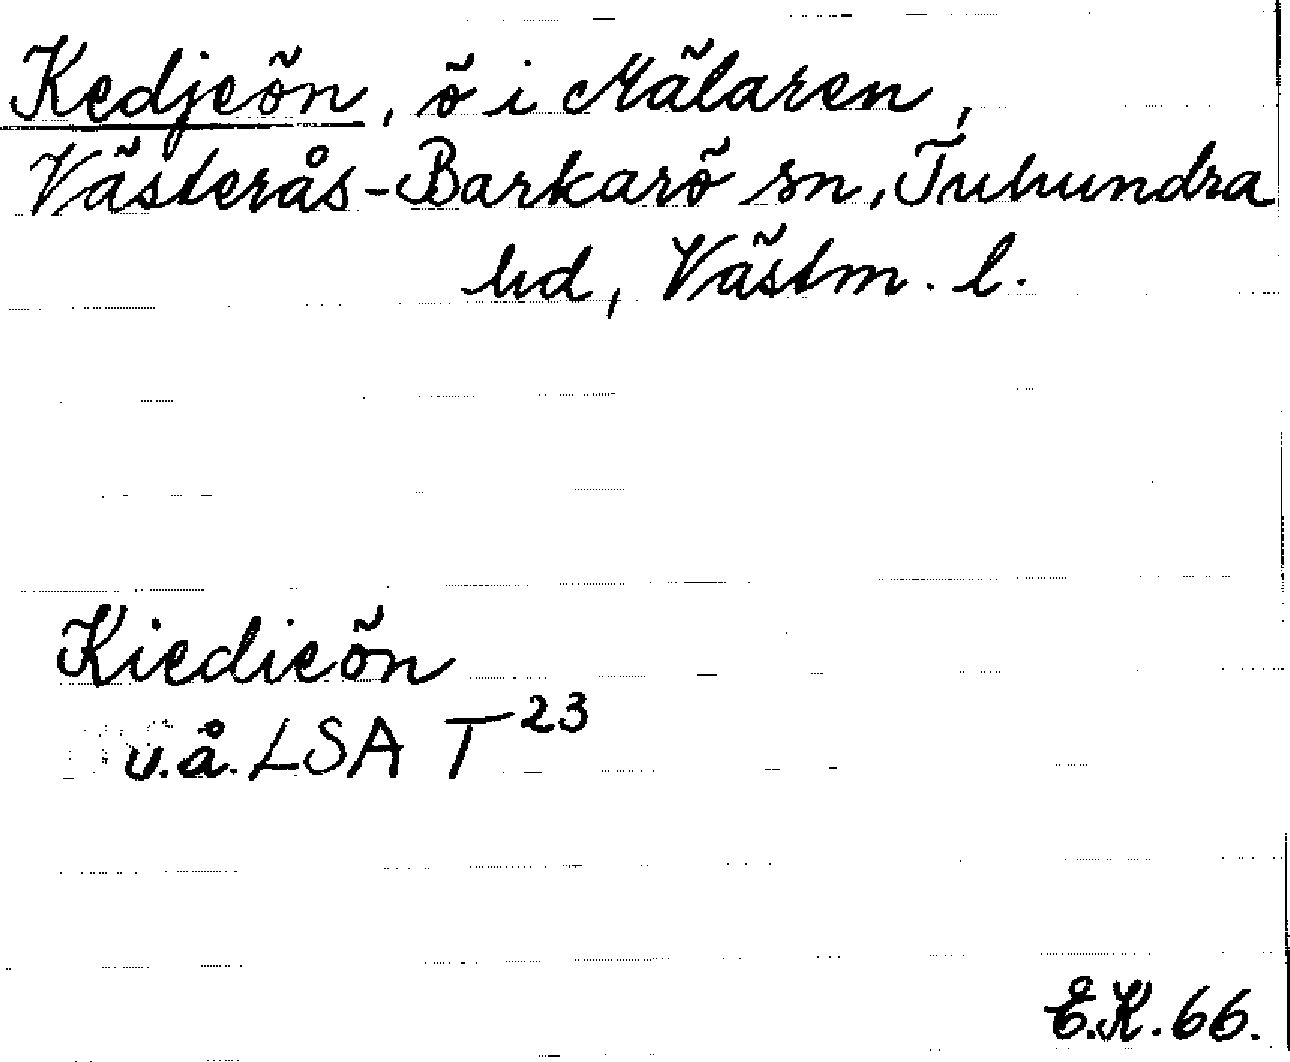 Kedjeön, ö i Mälaren,
Västerås-Barkarö sn, Tuhundra
hd, Västm. l.
Kiedieön
u.å. LSA T 23
E.K. 66.